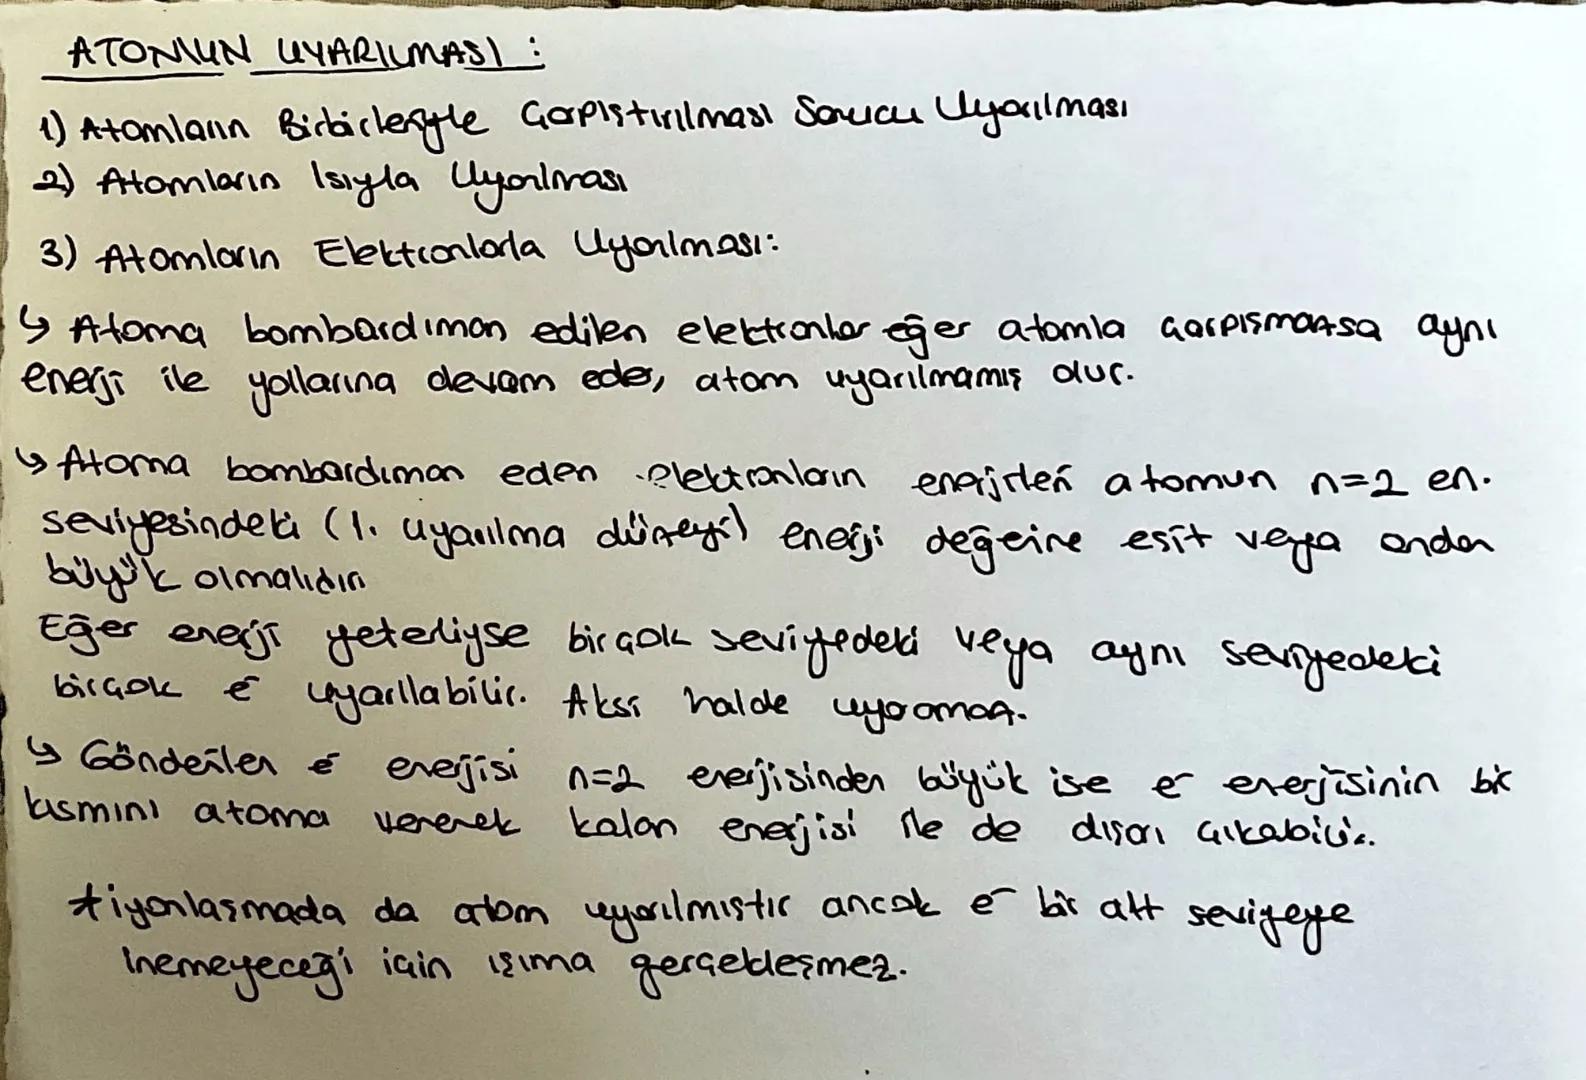 ATOMUN UYARILMASI :
1) Atomların Birbirleriyle Çarpıştırılması Sonucu Uyarılması
2) Atomların Isıyla Uyarılması
3) Atomların Elektronlarla Uyarılması:
↳ Atoma bombardıman edilen elektronlar eğer atomla çarpışmazsa aynı
enerji ile yollarına devam eder, atom uyarılmamış olur.
↳ Atoma bombardıman eden elektronların enerjileri atomun n=2 en.
seviyesindeki (1. uyarılma düzeyi) enerji değerine eşit veya ondan
büyük olmalıdır
Eğer enerji yeterliyse birçok seviyedeki veya aynı seviyedeki
birçok e⁻ uyarılabilir. Aksi halde uyaramaz.
↳ Gönderilen e⁻ enerjisi n=2 enerjisinden büyük ise e⁻ enerjisinin bir
kısmını atoma vererek kalan enerjisi ile de dışarı çıkabilir.
* iyonlaşmada da atom uyarılmıştır ancak e⁻ bir alt seviyeye
inemeyeceği için ışıma gerçekleşmez.